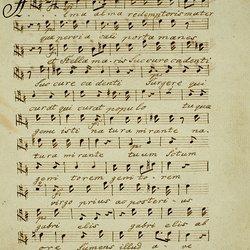 Alma alma redemptoris mater
quae pervia caeli porta manes
et Stella maris succure cadenti
Succure cadenti Surgere qui
curat qui curat populo tu quae
genuisti natura mirante na
tura mirante tuum Sotum
geni torem geni to rem
virgo prius ac posteri us
gabri elis gabri elis ab
ore Sumens illud a ve